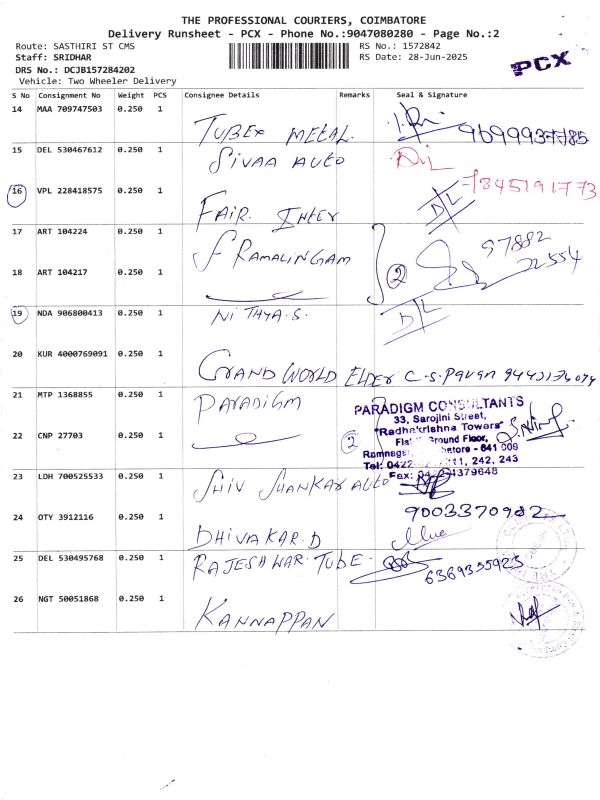 THE PROFESSIONAL COURIERS, COIMBATORE
Delivery Runsheet - PCX - Phone No.:9047080280 - Page No.:2
Route: SASTHIRI ST CMS RS No.: 1572842
Staff: SRIDHAR RS Date: 28-Jun-2025
DRS No.: DCJB157284202
Vehicle: Two Wheeler Delivery
PCX
S No Consignment No Weight PCS Consignee Details Remarks Seal & Signature
14 MAA 709747503 0.250 1 TUBEX METAL
15 DEL 530467612 0.250 1 SIVAA AUTO D/L 7845191773
16 VPL 228418575 0.250 1 FAIR INTER D/L
17 ART 104224 0.250 1 S RAMALINGAM 2 97882 22554
18 ART 104217 0.250 1
19 NDA 906800413 0.250 1 NITHYA.S. D/L
20 KUR 4000769091 0.250 1 GRAND WORLD ELDER C.S.Pavan
21 MTP 1368855 0.250 1 PARADIGM
22 CNP 27703 0.250 1 2
PARADIGM CONSULTANTS
33, Sarojini Street,
"Radhakrishna Towers"
Ground Floor,
641 009
Tel: 0422 242, 243
Fax: 4379648
23 LDH 700525533 0.250 1 SHIV SHANKAR AUTO
24 OTY 3912116 0.250 1 DHIVAKAR.D 9003370982
25 DEL 530495768 0.250 1 RAJESHWAR TUBE. 6369355923
26 NGT 50051868 0.250 1 KANNAPPAN